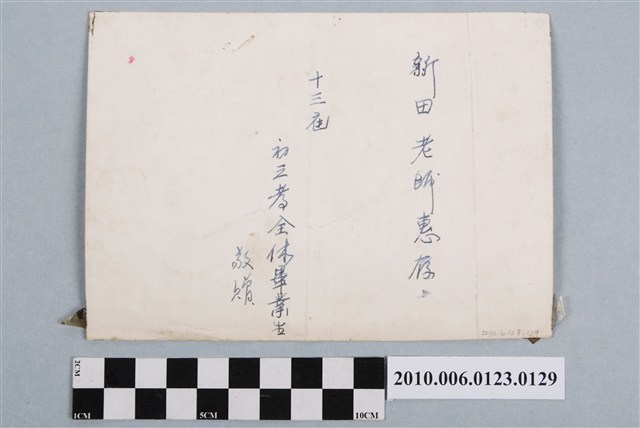 新田老師惠存
十三屆
初三孝全体畢業生
敬贈
2010.6.123.129
2CM
1CM
5CM
10CM
2010.006.0123.0129